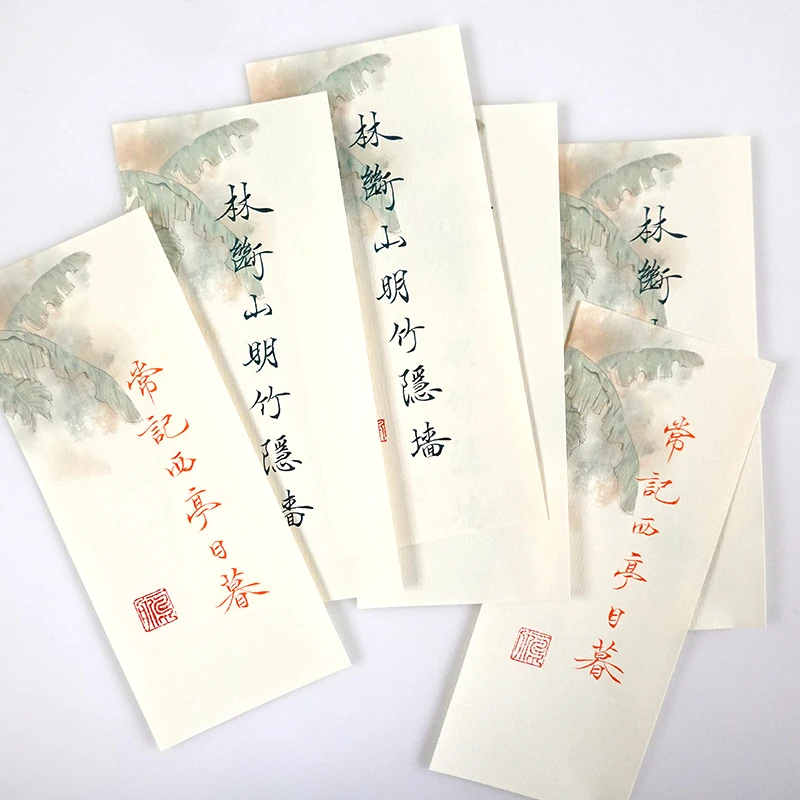 常記西亭日暮
林斷山明竹隱
林斷山明竹隱墻
林斷
常記西亭日暮